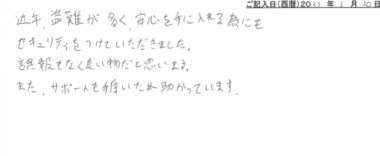 ご記入日(西暦)20 年 月 10日
近年、盗難が多く、安心を手に入れる為にも
セキュリティをつけていただきました。
誤報もなく良い物だと思います。
また、サポートも手厚いため助かっています。